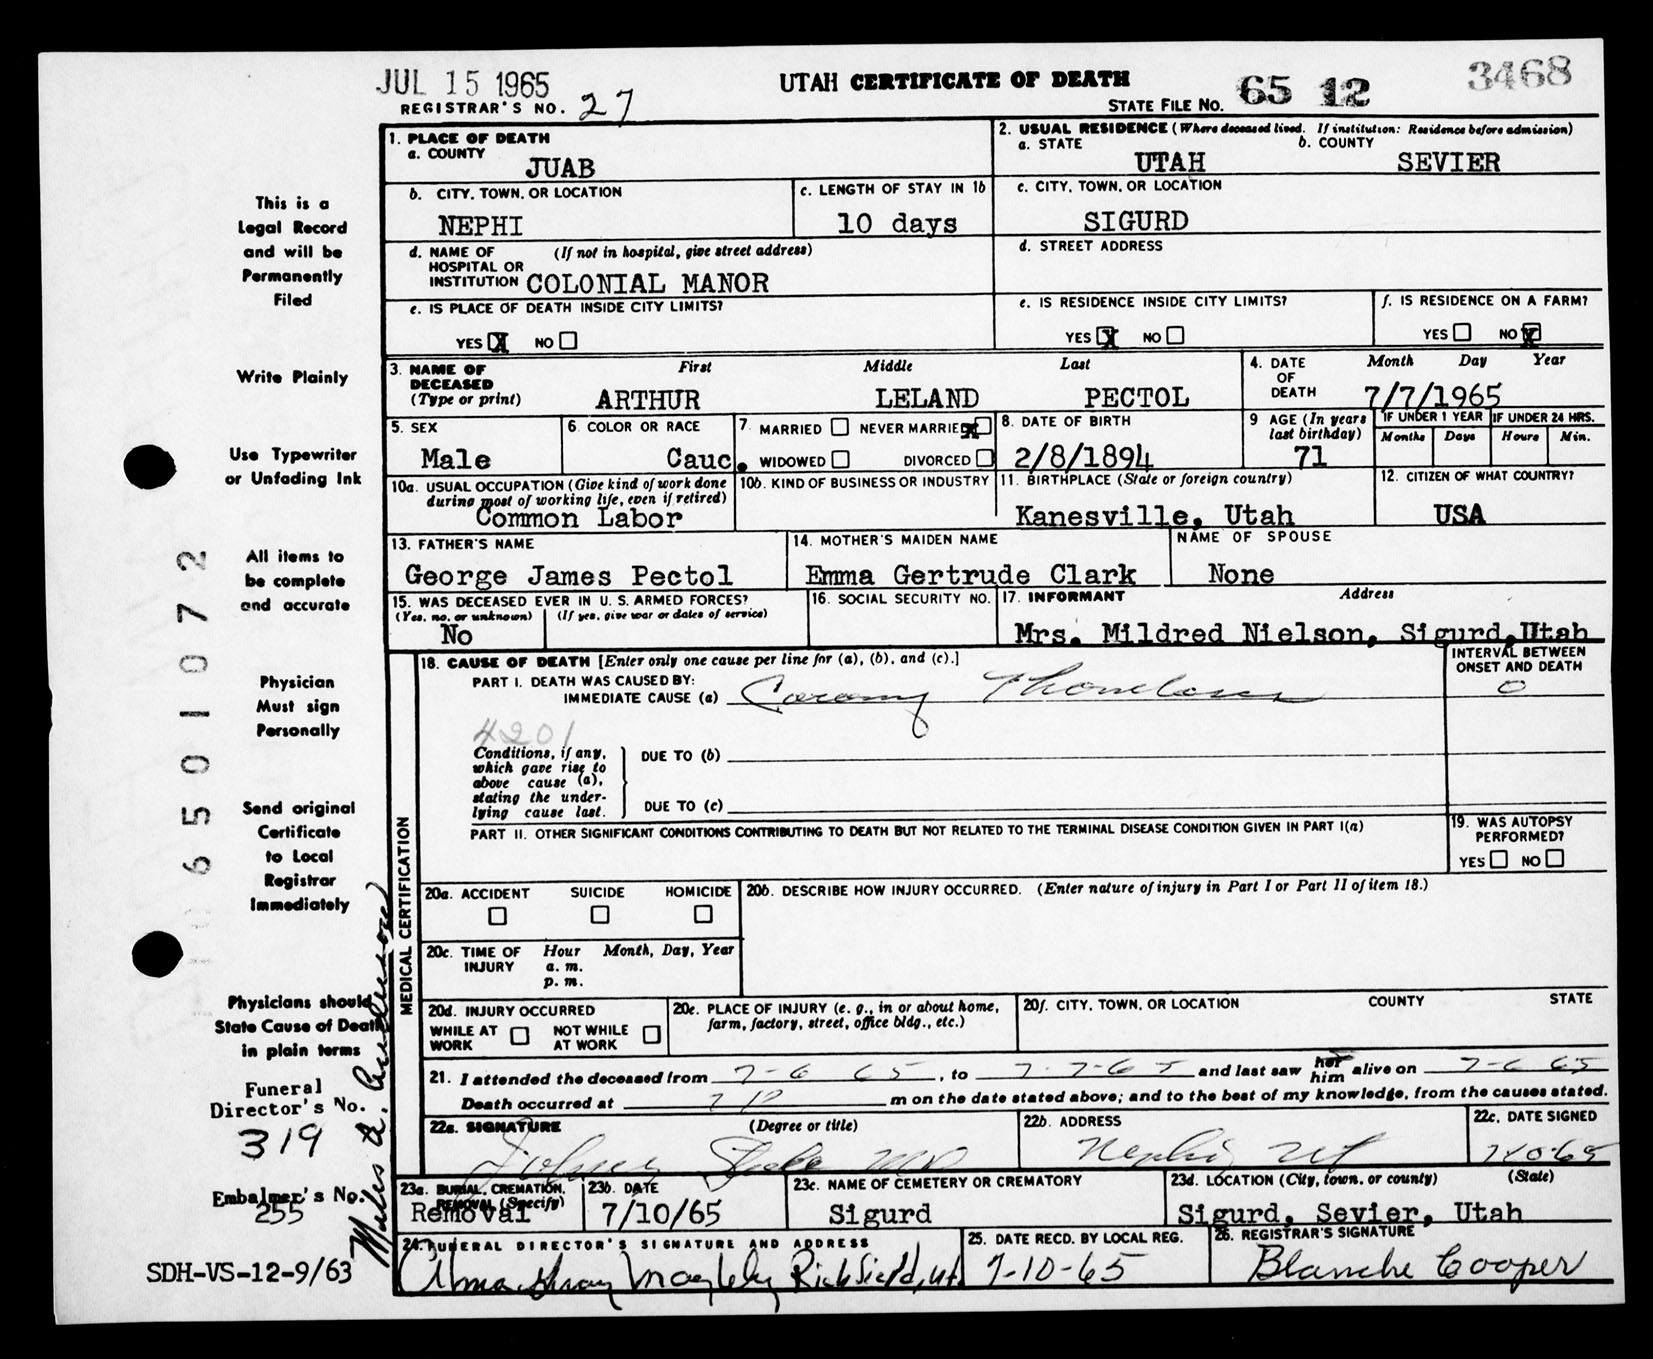 JUL 15 1965
UTAH CERTIFICATE OF DEATH
3468
REGISTRAR'S NO. 27
STATE FILE NO. 65 12
1. PLACE OF DEATH
a. COUNTY
JUAB
2. USUAL RESIDENCE (Where deceased lived. If institution: Residence before admission)
a. STATE b. COUNTY
UTAH SEVIER
b. CITY, TOWN, OR LOCATION
NEPHI
c. LENGTH OF STAY IN 1b
10 days
c. CITY, TOWN, OR LOCATION
SIGURD
d. NAME OF (If not in hospital, give street address)
HOSPITAL OR
INSTITUTION COLONIAL MANOR
d. STREET ADDRESS
e. IS PLACE OF DEATH INSIDE CITY LIMITS?
YES X NO
e. IS RESIDENCE INSIDE CITY LIMITS?
YES X NO
f. IS RESIDENCE ON A FARM?
YES NO X
3. NAME OF First Middle Last
DECEASED
(Type or print) ARTHUR LELAND PECTOL
4. DATE Month Day Year
OF
DEATH 7/7/1965
5. SEX
Male
6. COLOR OR RACE
Cauc.
7. MARRIED NEVER MARRIED X
WIDOWED DIVORCED
8. DATE OF BIRTH
2/8/1894
9 AGE (In years
last birthday)
71
IF UNDER 1 YEAR IF UNDER 24 HRS.
Months Days Hours Min.
10a. USUAL OCCUPATION (Give kind of work done
during most of working life, even if retired)
Common Labor
10b. KIND OF BUSINESS OR INDUSTRY
11. BIRTHPLACE (State or foreign country)
Kanesville, Utah
12. CITIZEN OF WHAT COUNTRY?
USA
13. FATHER'S NAME
George James Pectol
14. MOTHER'S MAIDEN NAME
Emma Gertrude Clark
NAME OF SPOUSE
None
15. WAS DECEASED EVER IN U. S. ARMED FORCES?
(Yes, no, or unknown) (If yes, give war or dates of service)
No
16. SOCIAL SECURITY NO.
17. INFORMANT Address
Mrs. Mildred Nielson, Sigurd, Utah
18. CAUSE OF DEATH [Enter only one cause per line for (a), (b), and (c).]
INTERVAL BETWEEN
ONSET AND DEATH
0
PART I. DEATH WAS CAUSED BY:
IMMEDIATE CAUSE (a) Coronary Thrombosis
4201
Conditions, if any,
which gave rise to
above cause (a),
stating the under-
lying cause last.
DUE TO (b)
DUE TO (c)
PART II. OTHER SIGNIFICANT CONDITIONS CONTRIBUTING TO DEATH BUT NOT RELATED TO THE TERMINAL DISEASE CONDITION GIVEN IN PART I(a)
19. WAS AUTOPSY
PERFORMED?
YES NO
MEDICAL CERTIFICATION
20a. ACCIDENT SUICIDE HOMICIDE
20b. DESCRIBE HOW INJURY OCCURRED. (Enter nature of injury in Part I or Part II of item 18.)
20c. TIME OF Hour Month, Day, Year
INJURY a. m.
p. m.
20d. INJURY OCCURRED
WHILE AT NOT WHILE
WORK AT WORK
20e. PLACE OF INJURY (e. g., in or about home,
farm, factory, street, office bldg., etc.)
20f. CITY, TOWN, OR LOCATION COUNTY STATE
21. I attended the deceased from 7-6 65, to 7-7-65 and last saw her him alive on 7-6 65
Death occurred at 7 P m on the date stated above; and to the best of my knowledge, from the causes stated.
22a. SIGNATURE (Degree or title)
MD
22b. ADDRESS
Nephi, Ut
22c. DATE SIGNED
7-10-65
23a. BURIAL, CREMATION,
REMOVAL (Specify)
Removal
23b. DATE
7/10/65
23c. NAME OF CEMETERY OR CREMATORY
Sigurd
23d. LOCATION (City, town, or county) (State)
Sigurd, Sevier, Utah
24. FUNERAL DIRECTOR'S SIGNATURE AND ADDRESS
Richfield, Ut.
25. DATE RECD. BY LOCAL REG.
7-10-65
26. REGISTRAR'S SIGNATURE
Blanche Cooper
This is a
Legal Record
and will be
Permanently
Filed
Write Plainly
Use Typewriter
or Unfading Ink
All items to
be complete
and accurate
Physician
Must sign
Personally
Send original
Certificate
to Local
Registrar
Immediately
Physicians should
State Cause of Death
in plain terms
Funeral
Director's No.
319
Embalmer's No.
255
SDH-VS-12-9/63
6501072